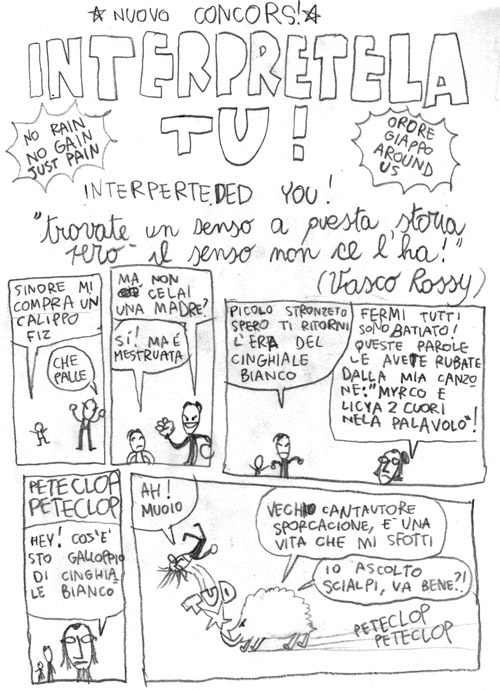 ☆ NUOVO CONCORS! ☆
INTERPRETELA
TU!
NO RAIN
NO GAIN
JUST PAIN
ORDRE
GIAPPO
AROUND
US
INTERPERTEDED YOU!
"trovate un senso a puesta storia
pero il senso non ce l'ha!"
(Vasco Rossy)
SINORE MI
COMPRA UN
CALIPPO
FIZ
CHE
PALLE
MA NON
CELAI
UNA MADRE?
SI! MA É
MESTRUATA
PICOLO STRONZETO
SPERO TI RITORNI
L'ERA DEL
CINGHIALE
BIANCO
FERMI TUTTI
SONO BATIATO!
QUESTE PAROLE
LE AVETE RUBATE
DALLA MIA CANZO
NE: "MYRCO E
LICYA 2 CUORI
NELA PALAVOLO"!
PETECLOP
PETECLOP
HEY! COS'E'
STO GALLOPPIO
DI CINGHIA
LE BIANCO
AH!
MUOIO
VECHIO CANTAUTORE
SPORCACIONE, E' UNA
VITA CHE MI SFOTTI
IO ASCOLTO
SCIALPI, VA BENE?!
PETECLOP
PETECLOP